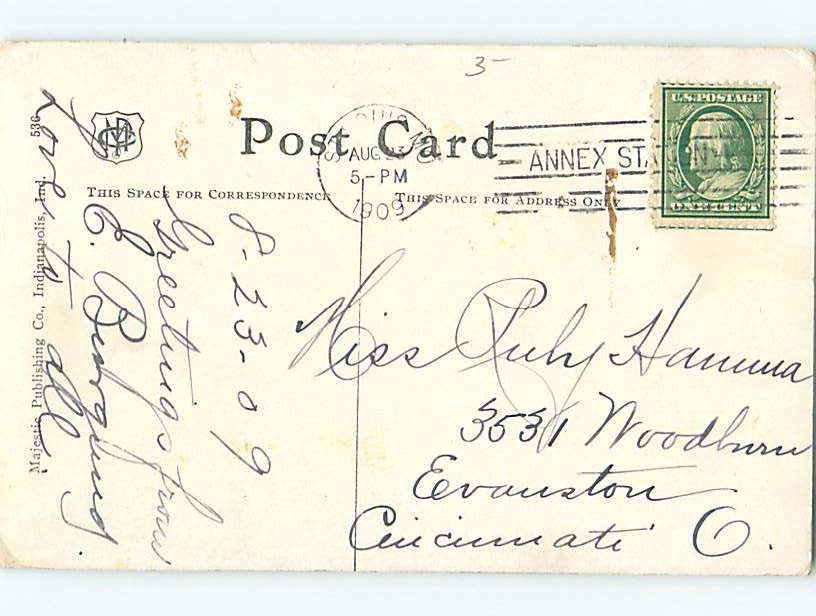 3-
Post Card
AUG 23
5-PM
1909
ANNEX STATION
U.S. POSTAGE
ONE CENT
THIS SPACE FOR CORRESPONDENCE
THIS SPACE FOR ADDRESS ONLY
536
Majestic Publishing Co., Indianapolis, Ind.
8-23-09
Greetings from
E.
Love to all
Miss Ruby Hamma
3531 Woodburn
Evanston
Cincinnati O.